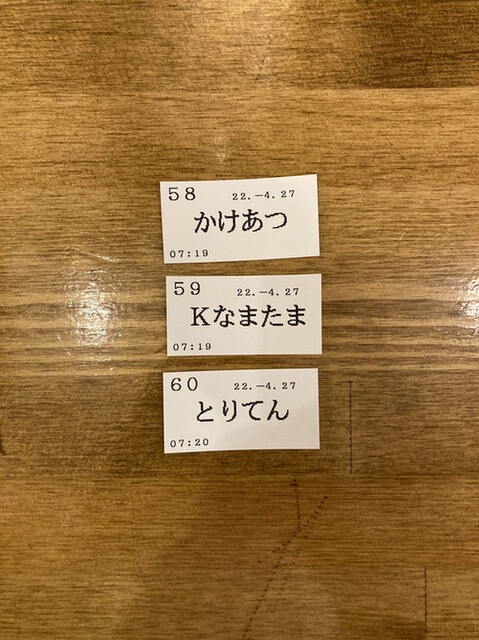 58 22.-4.27
かけあつ
07:19
59 22.-4.27
Kなまたま
07:19
60 22.-4.27
とりてん
07:20